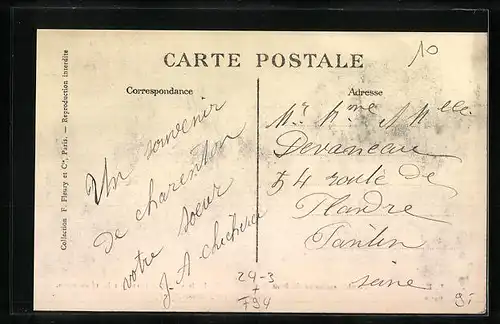 CARTE POSTALE
10
Correspondance
Adresse
Collection F. Fleury et Cie, Paris. — Reproduction interdite
Un souvenir
de charenton
votre soeur
J. A
Mr Mme
Devaneau
54 route de
Flandre
Pantin
seine
29-3
+
794